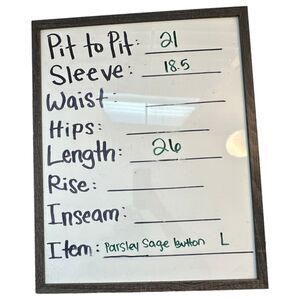 Pit to Pit: 21
Sleeve: 18.5
Waist:
Hips:
Length: 26
Rise:
Inseam:
Item: Parsley Sage button L